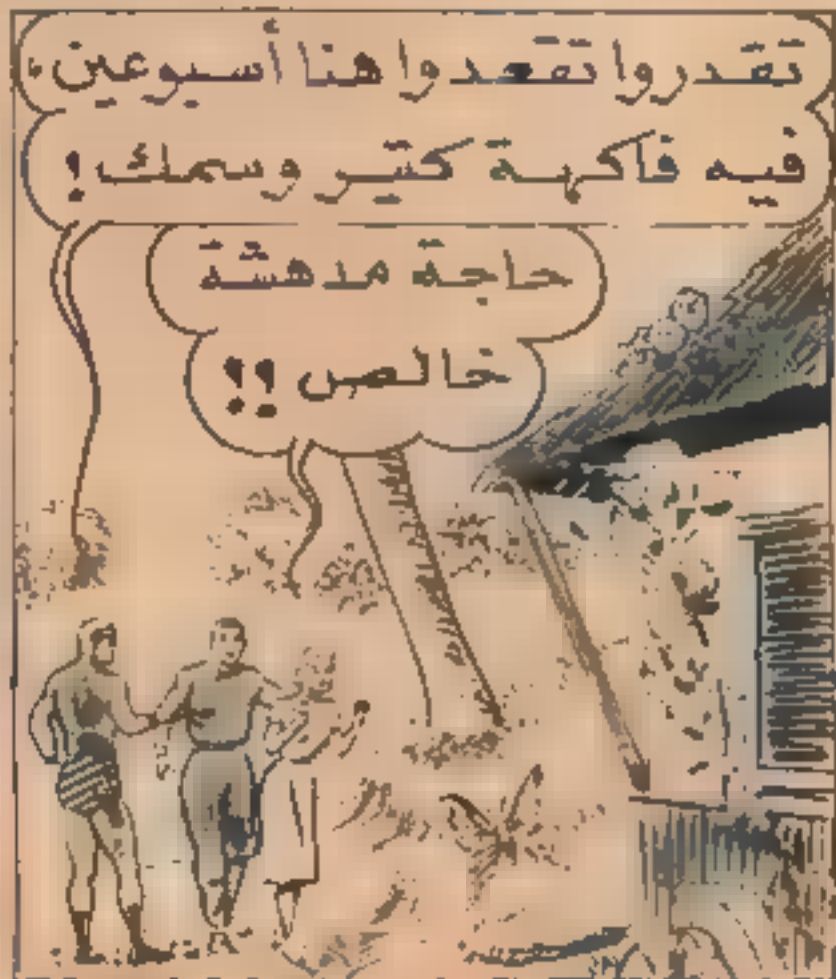 تقدروا تقعدوا هنا أسبوعين،
فيه فاكهة كتير وسمك!
حاجة مدهشة
خالص !!